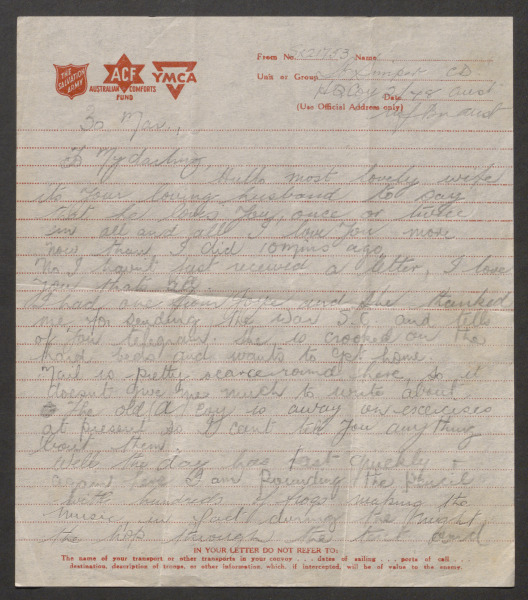 THE SALVATION ARMY
ACF
AUSTRALIAN COMFORTS FUND
YMCA
From No. Name
Unit or Group
Date
(Use Official Address only)
30 Mar,
To My darling,
most lovely wife
your loving husband to say
that he loves you, once or twice
in all and all I love you more
now than I did 10 mins ago.
No I haven't just received a letter, I love
you that's all.
I had one from and she thanked
me for sending the War S.C and tells
of your telegram. She is crooked on the
hard beds and wants to get home.
Mail is pretty scarce round here so it
doesn't give me much to write about
The old A Coy is away on exercises
at present so I can't tell you anything
bout them.
Well the day has past quickly +
again here I am pounding the pencil
with hundreds of frogs making the
music in fact during the night
the hop through the tent and
IN YOUR LETTER DO NOT REFER TO:
The name of your transport or other transports in your convoy . . . dates of sailing . . . ports of call . . .
destination, description of troops, or other information, which, if intercepted, will be of value to the enemy.